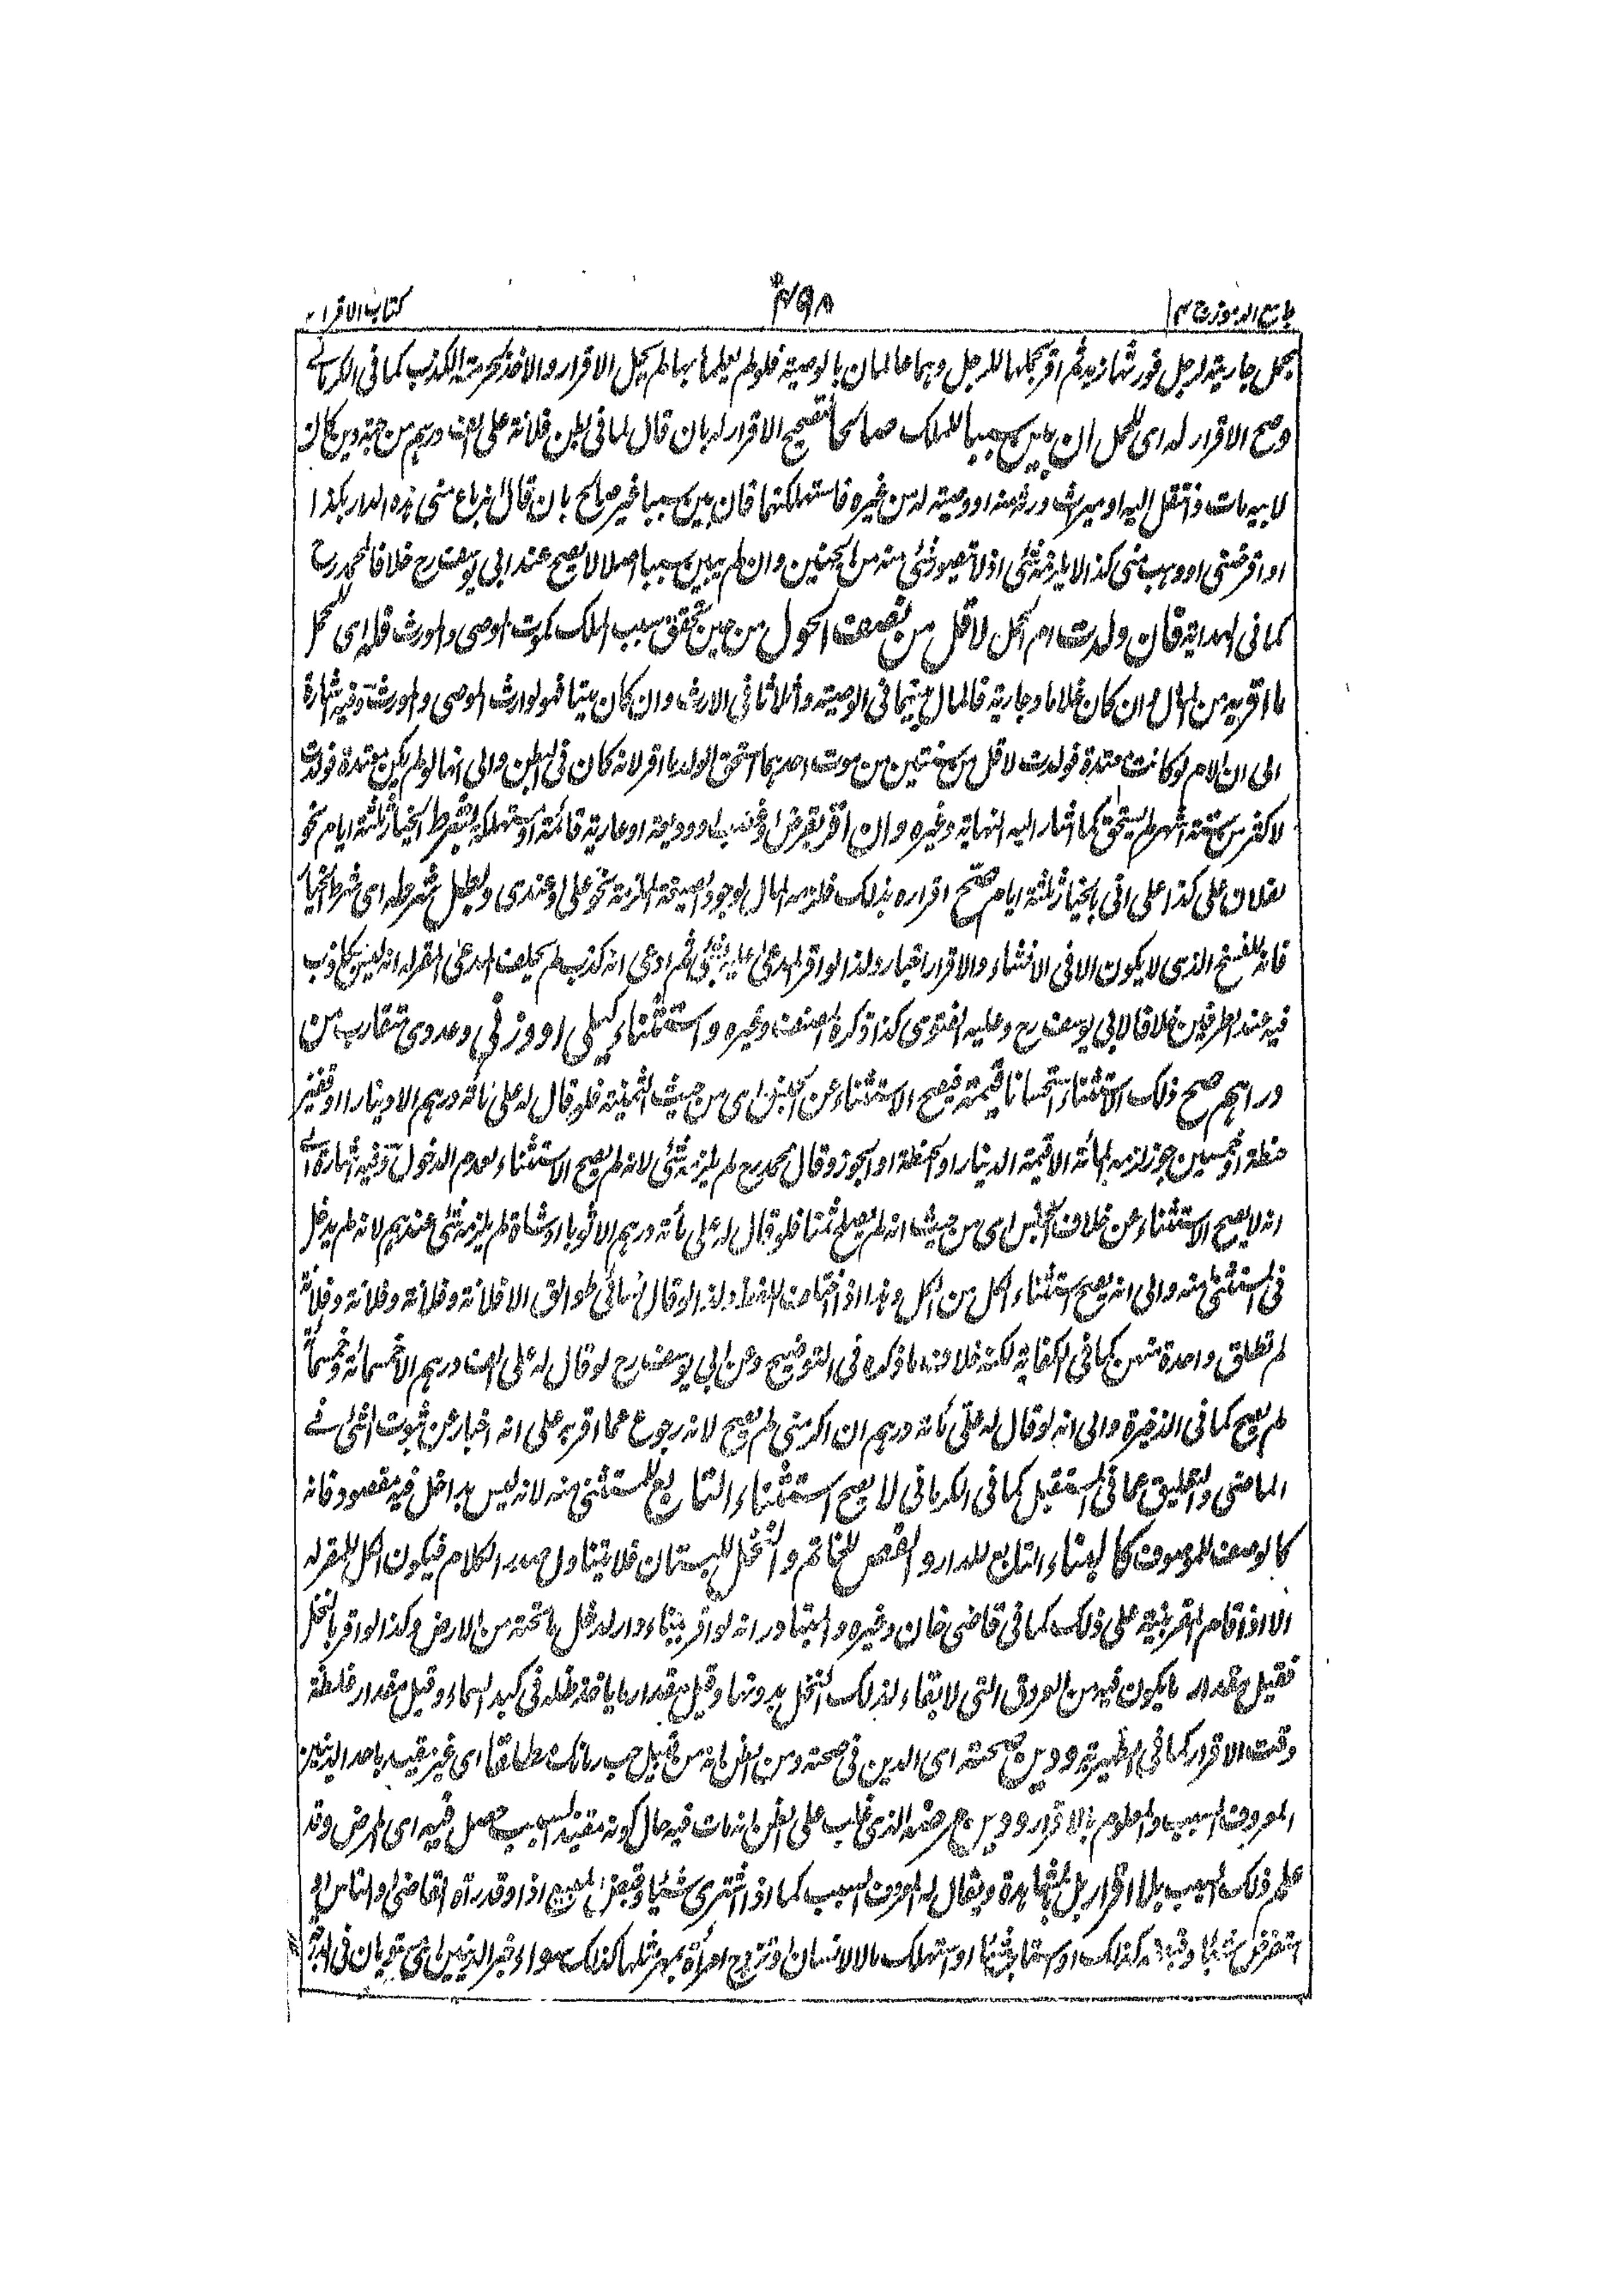 جامع الرموز ج ٢ ٤٩٨ كتاب الاقرار
بحمل جارية لرجل فورثها زيد ثم اقر بحملها للرجل وهما عالمان بالوصية فلو لم يعلما بها لم يحل الاقرار والاخذ لحرمة الكذب كما فى الكرمانے
وصح الاقرار له اى للحمل ان بين سببا للملك صالحا لتصحيح الاقرار له بان قال لما فى بطن فلانة على الف درهم من جهة دين كان
لابيه مات فانتقل اليه او ميراث ورثه منه او وصية له من غيره فاستهلكتها فان بين سببا غير صالح بان قال باع منى هذه الدار بكذا
او اقرضنى او وهب منى كذا لا يلزمه شئ اذ لا تيصور شئ منه من الجنين وان لم يبين سببا اصلا لا يصح عند ابى يوسف رح خلافا لمحمد رح
كما فى الهداية فان ولدت ام الحمل لاقل من نصف الحول من حين تحقق سبب الملك كموت الموصى والمورث فله اى للحمل
ما اقر به من المال وان كان غلاما وجارية فالمال بينهما فى الوصية واثلاثا فى الارث وان كان ميتا فهو لوارث الموصى والمورث وفيه اشارة
الى ان الام لو كانت معتدة فولدت لاقل من سنتين من موت احدهما استحق الولد ما اقر لانه كان فى البطن والى انها لو لم يكن معتدة فولدت
لاكثر من ستة اشهر لم يستحق كما اشار اليه النهاية وغيره وان اقر بقرض او غصب او وديعة او عارية قائمة او مستهلكة بشرط الخيار ثلثة ايام نحو
لفلان على كذا على انى بالخيار ثلثة ايام صح اقراره بذلك فلزمه المال لوجود الصيغة الملزمة نحو على او عندى وبطل شرطه اى شرط الخيار
فانه للفسخ الذى لا يكون الا فى الانشاء والاقرار اخبار ولذا لو اقر المدعى عليه بشئ ثم ادعى انه كذب لم يحلف المدعى المقر له انه ليس بكاذب
فيه عند الطرفين خلافا لابى يوسف رح وعليه الفتوى كذا ذكره المصنف وغيره واستثناء كيلى او وزنى وعددى متقارب من
دراهم صح ذلك الاستثناء استحسانا قيمة فيصح الاستثناء عن الجنس اى من حيث الثمنية فلو قال له على مائة درهم الا دينارا او قفيز
حنطة او خمسين جوز لزمه المائة الا قيمة الدينار او الحنطة او الجوز وقال محمد رح لم يلزمه شئ لانه لم يصح الاستثناء لعدم الدخول وفيه اشارة الے
انه لا يصح الاستثناء عن خلاف الجنس اى من حيث انه لم يصلح ثمنا فلو قال له على مائة درهم الا ثوبا او شاة لم يلزمه شئ عندهم لانه لم يدخل
فى المستثنى منه والى انه يصح استثناء الكل من الكل وهذا اذا اختلف اللفظ ولذا لو قال نسائى طوالق الا فلانة وفلانة وفلانة وفلانة
لم تطلق واحدة منهن كما فى الكفاية لكنه خلاف ما ذكره فى التوضيح وعن ابى يوسف رح لو قال له على الف درهم الا خمسمائة وخمسمائة
لم يصح كما فى الذخيرة والى انه لو قال له على مائة درهم ان اكرمنى لم يصح لانه رجوع عما اقر به على انه اخبار عن ثبوت الشئ نے
الماضى والتعليق عما فى المستقبل كما فى الكرمانى لا يصح استثناء التابع للمستثنى منه لانه ليس بداخل فيه مقصودا فانه
كالوصف للموصوف كالبناء التابع للدار و الفص للخاتم والنخل للبستان فلا يتناول صدر الكلام فيكون الكل للمقر له
الا اذا قام القرينة على ذلك كما فى قاضى خان وغيره والمتبادر انه لو اقر ببناء دار لدخل ما تحته من الارض وكذا لو اقر بالنخل
فقيل مقدار ما يكون فيه من العروق التى لا بقاء لذلك النخل بدونها وقيل مقدار ما ياخذ ظله فى كبد السماء وقيل مقدار غلظة
وقت الاقرار كما فى الظهيرية ودين صحته اى الدين فى صحته ومن الظن انه من قبيل حب رمانك مطلقا اى غير مقيد باحد الدينين
المعروف السبب والمعلوم بالاقرار ودين مرضه الذى غلب على الظن انه مات فيه حال كونه مقيدا بسبب حصل فيه اى المرض وقد
علم ذلك السبب بلا اقرار بل بمشاهدة ويقال له المعروف السبب كما اذا اشترى شيئا وقبض المبيع اذا وقد رآه القاضى والناس او
استقرض شيئا وقبضه كذلك او استاجر شيئا او استهلك مالا لانسان او تزوج امرأة بمهر مثلها كذلك سواء وخبر الدينين اى مستويان فى